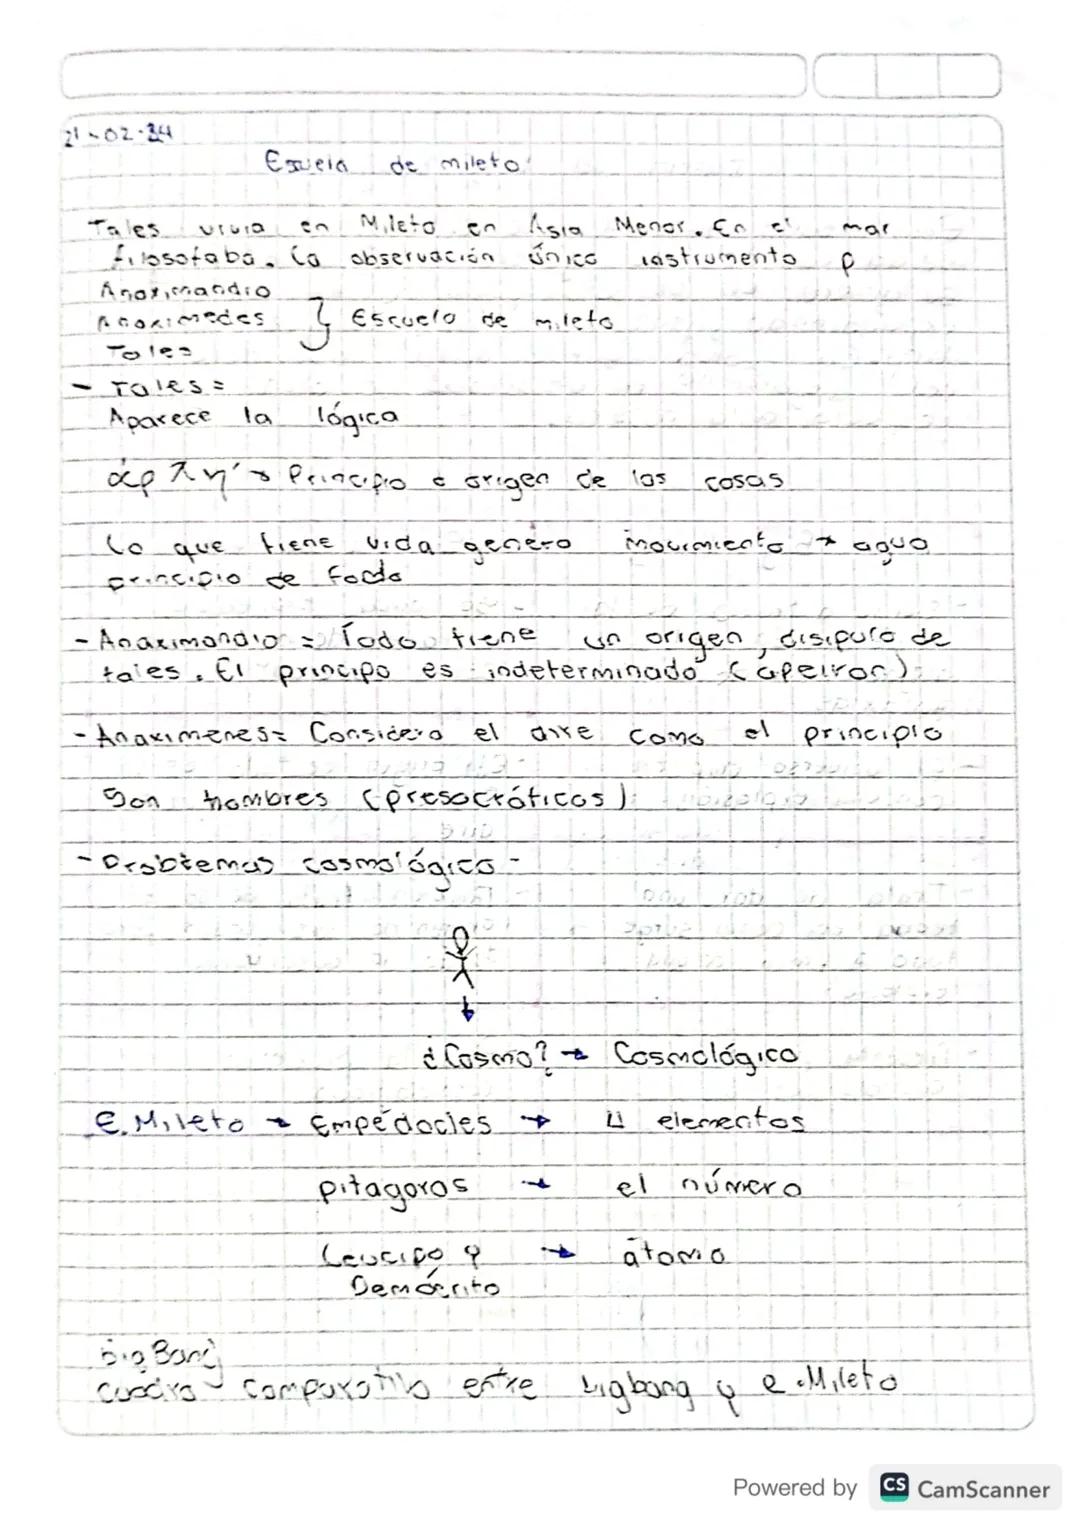 21-02-24
Escuela de mileto
Tales vivia en Mileto en Asia Menor. En el mar
filosofaba. La observación único instrumento p
Anaximandro
Anaximedes } Escuela de mileto
Tales
- Tales =
Aparece la lógica
άρχή → Principio o origen de las cosas
Lo que tiene vida genero movimiento → agua
principio de todo
- Anaximandro = Todo tiene un origen, disipulo de
tales. El principo es indeterminado (apeiron)
- Anaximenes = Considera el aire como el principio
Son hombres (presocráticos)
- Problemas cosmológico -
¿Cosmo? → Cosmológico
E. Mileto → Empédocles → 4 elementos
pitagoras → el número
Leucipo y → átomo
Demócrito
Big Bang
Cuadro comparativo entre bigbang y e. Mileto
Powered by CS CamScanner